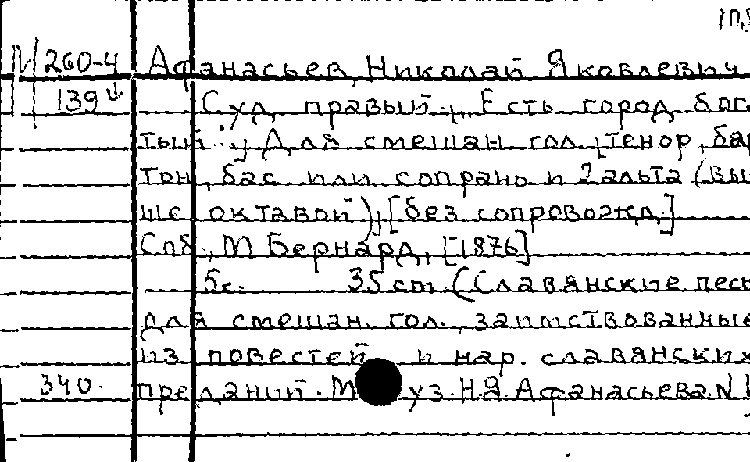 М 260-4 Афанасьев, Николай Яковлевич
139 Суд правый; Есть город бога
тый; Для смешан. гол. [тенор, бари
тон, бас или сопрано и 2 альта (вы
ше октавой), [без сопровожд.]
Спб., М. Бернард, [1876]
5с. 35 cm. (Славянские песн
для смешан. гол., заимствованные
из повестей и нар. славянских
340. преданий. Муз. Н.Я. Афанасьева. N